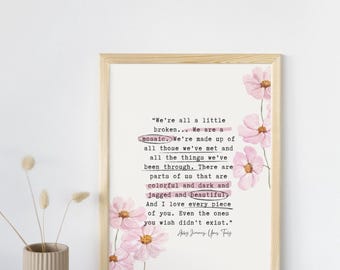 "We're all a little
broken... We are a
mosaic. We're made up of
all those we've met and
all the things we've
been through. There are
parts of us that are
colorful and dark and
jagged and beautiful.
And I love every piece
of you. Even the ones
you wish didn't exist."
Abby Jimenez, Yours Truly